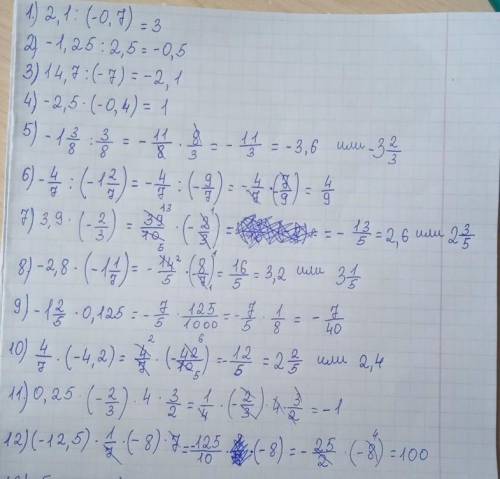 1) 2,1 : (-0,7) = 3
2) -1,25 : 2,5 = -0,5
3) 14,7 : (-7) = -2,1
4) -2,5 · (-0,4) = 1
5) -1 3/8 : 3/8 = -11/8 · 8/3 = -11/3 = -3,6 или -3 2/3
6) -4/7 : (-1 2/7) = -4/7 : (-9/7) = -4/7 · (7/9) = 4/9
7) 3,9 · (-2/3) = 39/10 · (-2/3) = = -13/5 = 2,6 или 2 3/5
8) -2,8 · (-1 1/7) = -14/5 · (8/7) = 16/5 = 3,2 или 3 1/5
9) -1 2/5 · 0,125 = -7/5 · 125/1000 = -7/5 · 1/8 = -7/40
10) 4/7 · (-4,2) = 4/7 · (-42/10) = -12/5 = 2 2/5 или 2,4
11) 0,25 · (-2/3) · 4 · 3/2 = 1/4 · (-2/3) · 4 · 3/2 = -1
12) (-12,5) · 1/7 · (-8) · 7 = -125/10 · (-8) = -25/2 · (-8) = 100